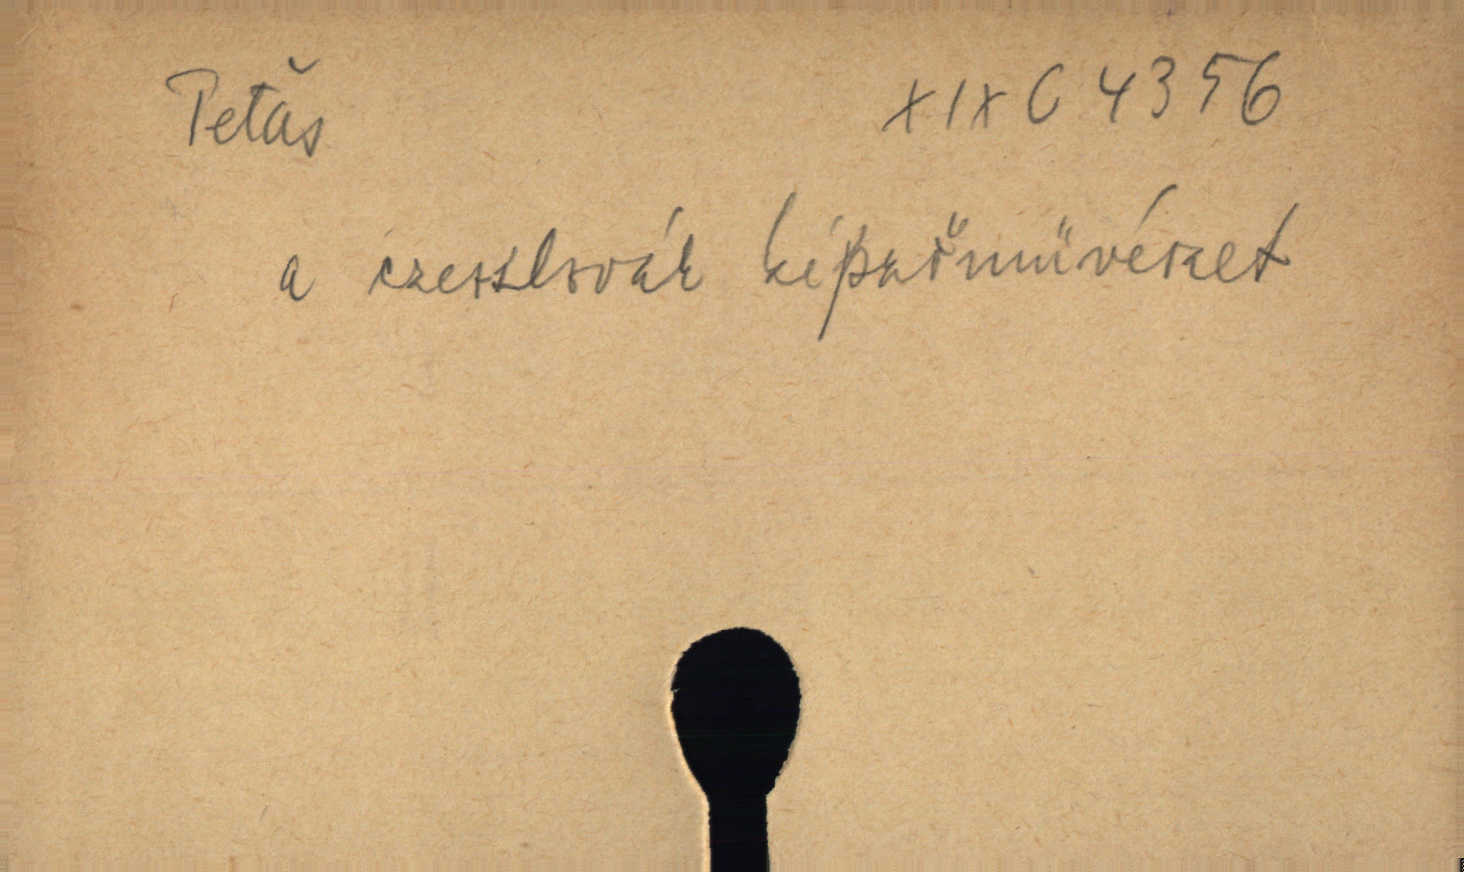 Petăs XIX C 4356
a czeszlovák képzőművészet